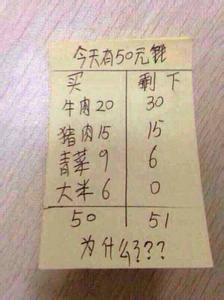 今天有50元钱
买 剩下
牛肉20 30
猪肉15 15
青菜9 6
大米6 0
50 51
为什么???